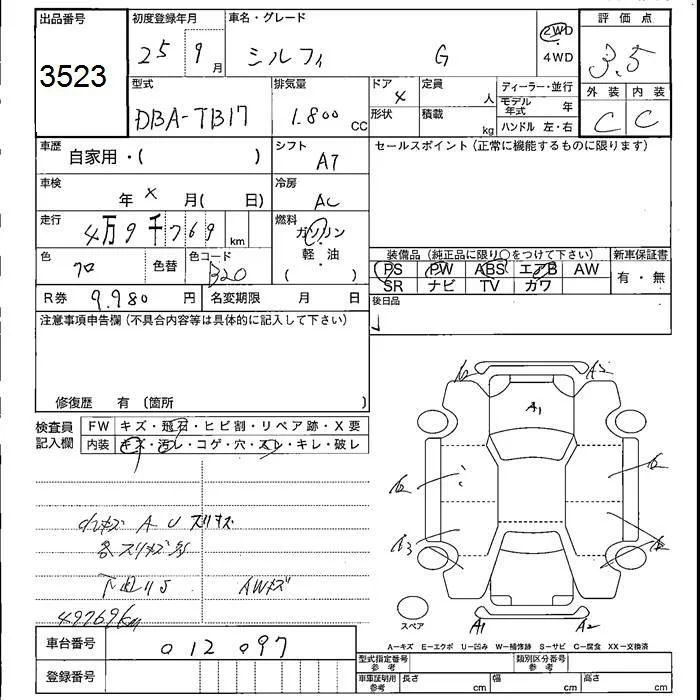 出品番号 初度登録年月 車名・グレード 評価点
3523 25 9月 シルフィ G 2WD・4WD 3.5
外装 内装
C C
型式 排気量 ドア 定員 ディーラー・並行
DBA-TB17 1.800 CC 4 人 モデル年式 年
形状 積載 kg ハンドル 左・右
車歴 自家用・( ) シフト A7 セールスポイント(正常に機能するものに限ります)
車検 年 x 月( 日) 冷房 AC
走行 4万9千769 km 燃料 ガソリン・軽・油 ( )
色 クロ 色替 色コード B20
装備品(純正品に限り○をつけて下さい) 新車保証書
PS PW ABS エアB AW 有・無
SR ナビ TV カワ
R券 9.980 円 名変期限 月 日 後日品
注意事項申告欄(不具合内容等は具体的に記入して下さい)
修復歴 有 〔箇所 〕
検査員記入欄 FW キズ・飛石・ヒビ割・リペア跡・X要
内装 キズ・汚レ・コゲ・穴・スレ・キレ・破レ
A1
A U スリキズ
各スリキズ
下 AWキズ
49769km
スペア A1 A2
A-キズ E-エクボ U-凹み W-補修跡 S-サビ C-腐食 XX-交換済
車台番号 012097
登録番号
型式指定番号 参考 類別区分番号 参考
車庫証明用 参考 長さ cm 幅 cm 高さ cm